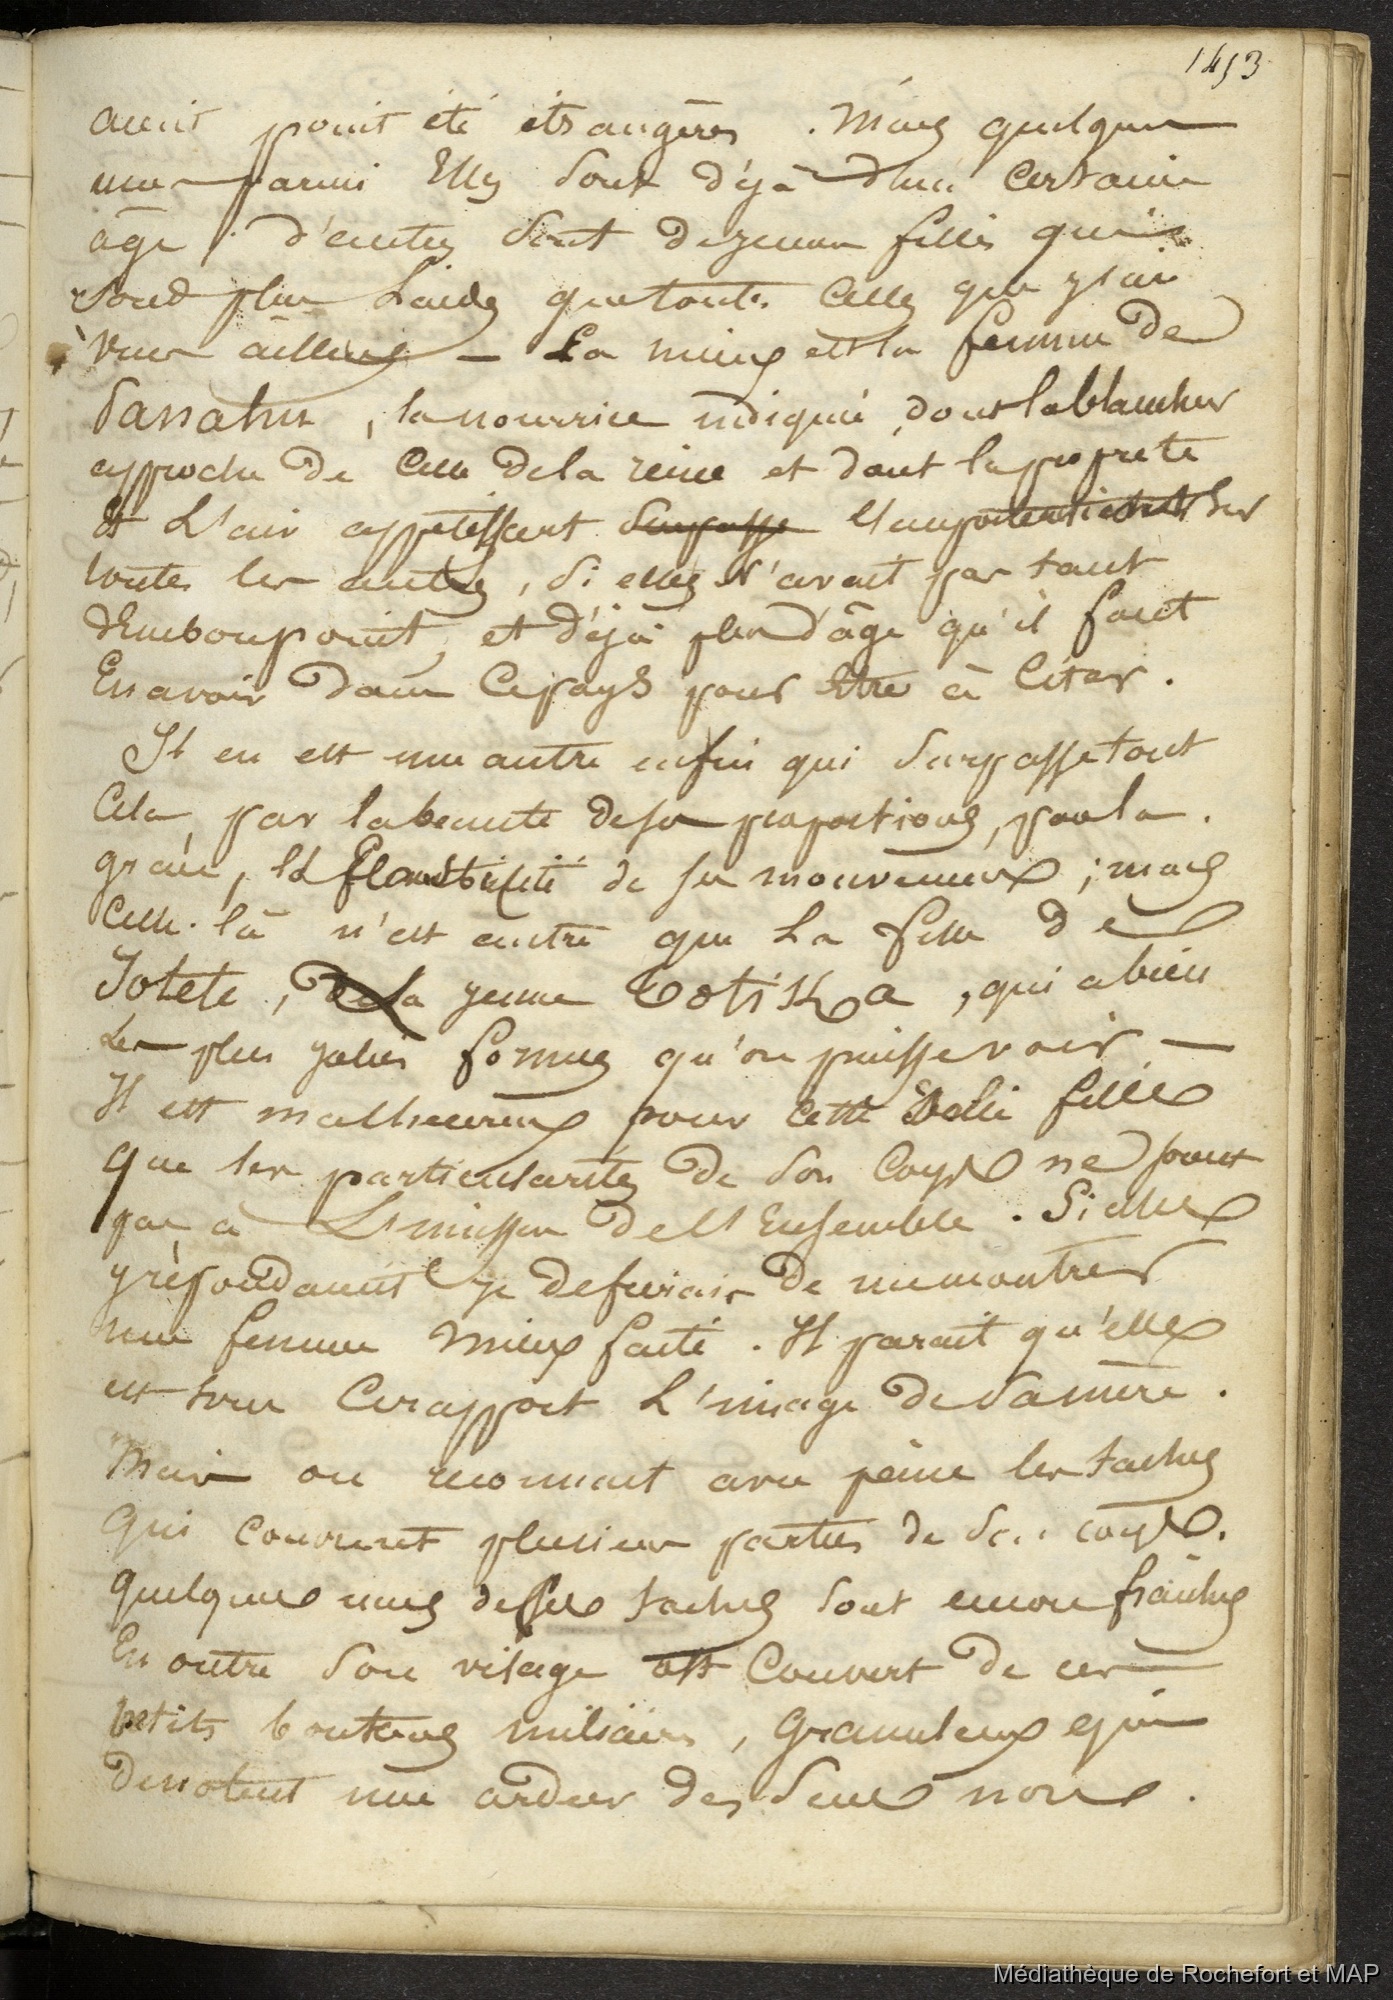 1453
avait point été étrangères. Mais quelques
unes parmi Elles sont déjà d'un certain
âge. d'autres sont de jeunes filles qui
sont plus Laides que toutes Celles que j'ai
vues ailleurs — La mieux est la femme de
, la nourrice indiquée, dont la blancheur
approche de Celle de la reine et dont la propreté
et L'air appétissant surpasse l'emporteraient sur
toutes les autres, Si elles N'avait pas tant
d'Embonpoint, et déjà plus d'âge qu'il faut
En avoir dans Ce pays pour être à Citer.
Il en est une autre enfin qui Surpasse tout
Cela, par la beauté de ses proportions, par la
grâce, l'Elasticité de ses mouvemens ; mais
Celle-là n'est autre que La fille de
Jotété, la jeune Totika, qui a bien
Les plus jolies formes qu'on puisse voir —
Il est malheureux pour cette Belle fille
que les particularités de Son Corps ne soient
pas à L'unisson de l'Ensemble. Si elles
y répondaient je defierais de me montrer
une femme mieux faite. Il parait qu'elle
est sous Ce rapport L'image de Sa mère.
Mais on reconnait avec peine les taches
Qui couvrent plusieurs parties de Son corps.
Quelques unes de ses taches sont encore fraiches
En outre Son visage est Couvert de ces
petits boutons miliaires, Granuleux qui
denotent une ardeur des Sens